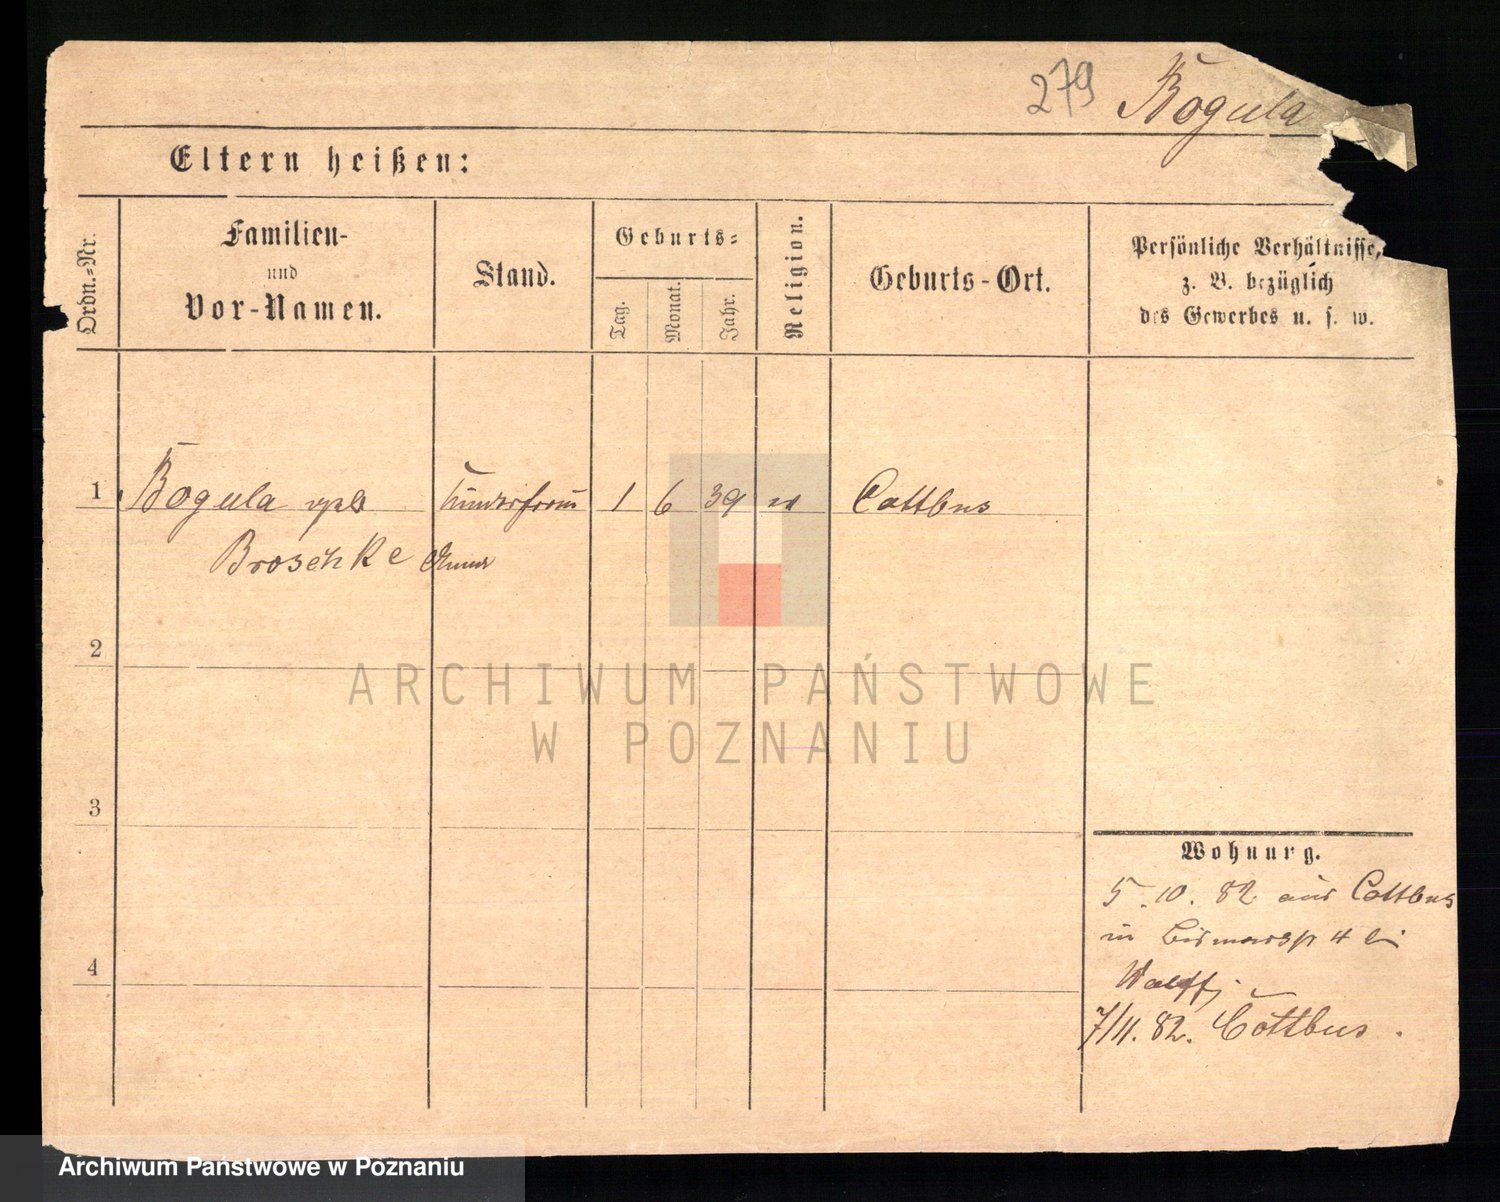 279 Bogula
Eltern heißen:
Ordn.=Nr.
Familien-
und
Vor-Namen.
Stand.
Geburts=
Tag.
Monat.
Jahr.
Religion.
Geburts-Ort.
Persönliche Verhältnisse,
z. B. bezüglich
des Gewerbes u. s. w.
1 Bogula 1 6 39 Cottbus
Broschke
2
3
4
Wohnung.
5.10.82 aus Cottbus
in 4 bei
Wolff
7/11.82. Cottbus.
ARCHIWUM PAŃSTWOWE
W POZNANIU
Archiwum Państwowe w Poznaniu